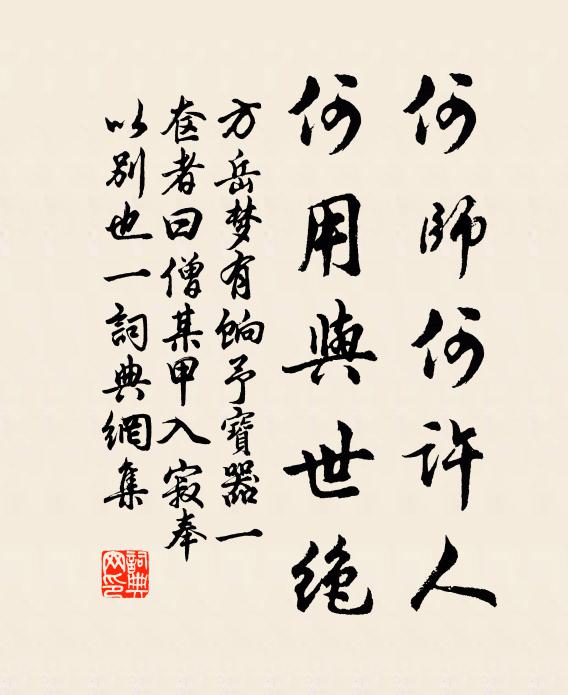 何師何許人
何用與世絶
方岳梦有餉予寶器一
奁者曰僧某甲入寂奉
以别也一詞典網集
詞典
网印